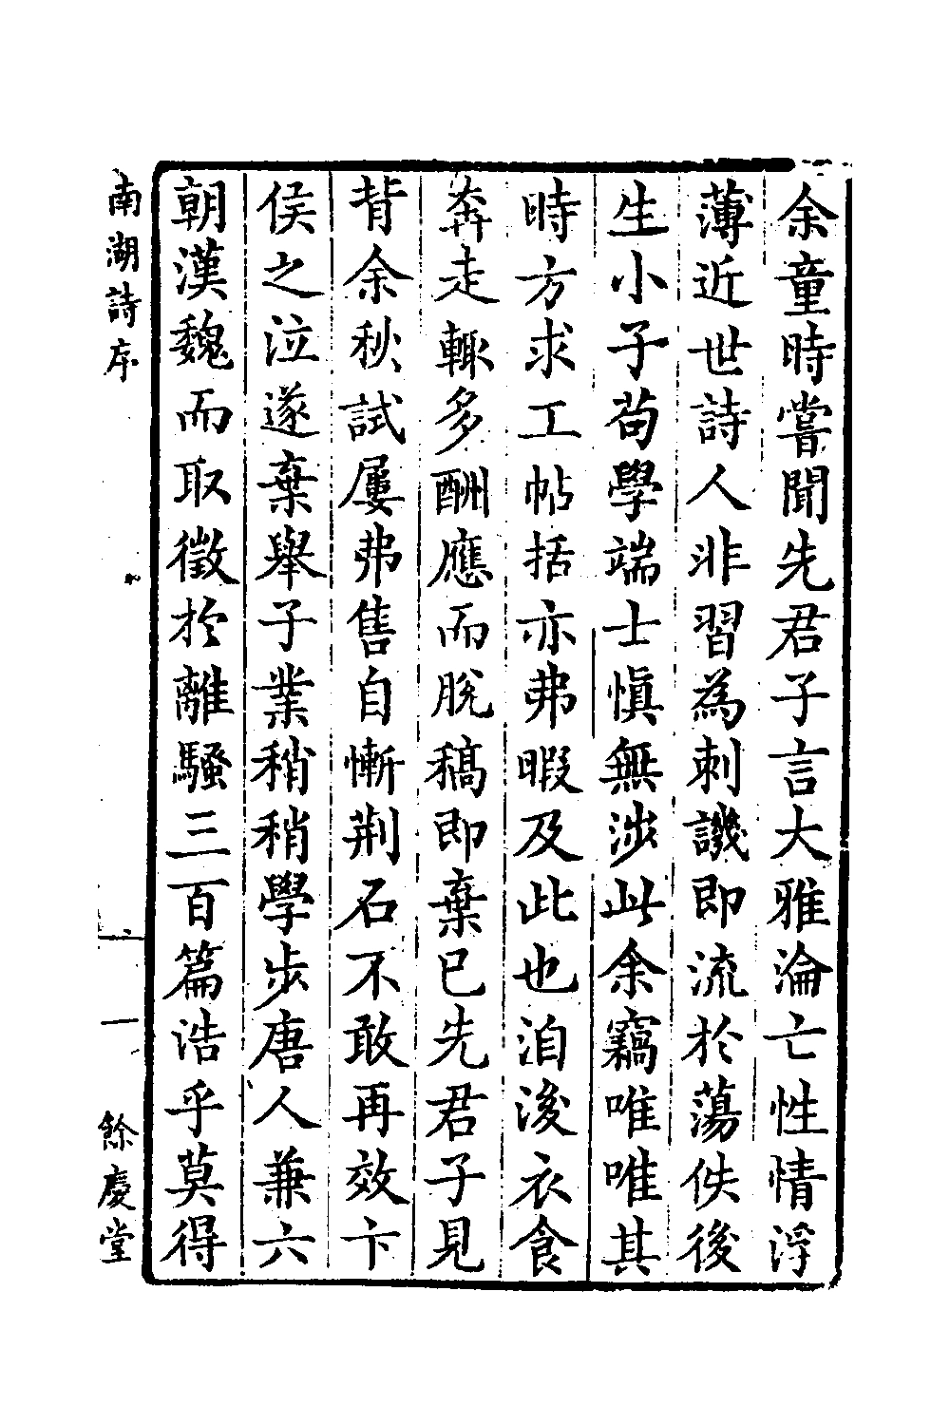 余童時嘗聞先君子言大雅淪亡性情浮
薄近世詩人非習為刺譏即流於蕩佚後
生小子苟學端士慎無涉此余竊唯唯其
時方求工帖括亦弗暇及此也洎後衣食
奔走輙多酬應而脫稿即棄已先君子見
背余秋試屢弗售自慚荆石不敢再效卞
侯之泣遂棄舉子業稍稍學步唐人兼六
朝漢魏而取徵於離騷三百篇浩乎莫得
南湖詩序
一
餘慶堂